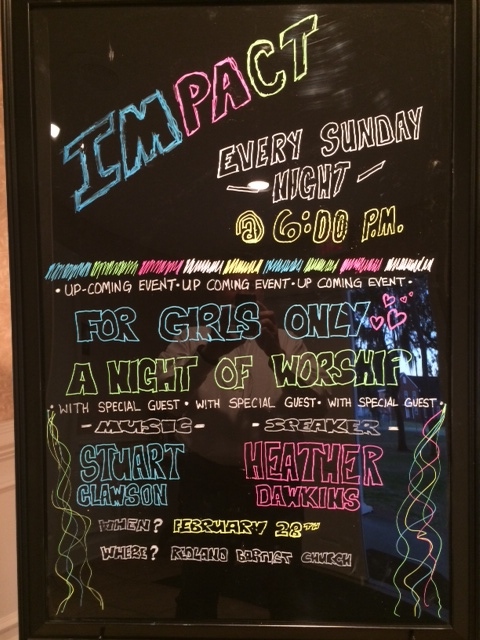 IMPACT
EVERY SUNDAY
- NIGHT -
@ 6:00 P.M.
• UP-COMING EVENT • UP COMING EVENT • UP COMING EVENT •
FOR GIRLS ONLY
A NIGHT OF WORSHIP
• WITH SPECIAL GUEST • WITH SPECIAL GUEST • WITH SPECIAL GUEST •
- MUSIC - - SPEAKER -
STUART HEATHER
CLAWSON DAWKINS
WHEN? FEBRUARY 28TH
WHERE? REDLAND BAPTIST CHURCH